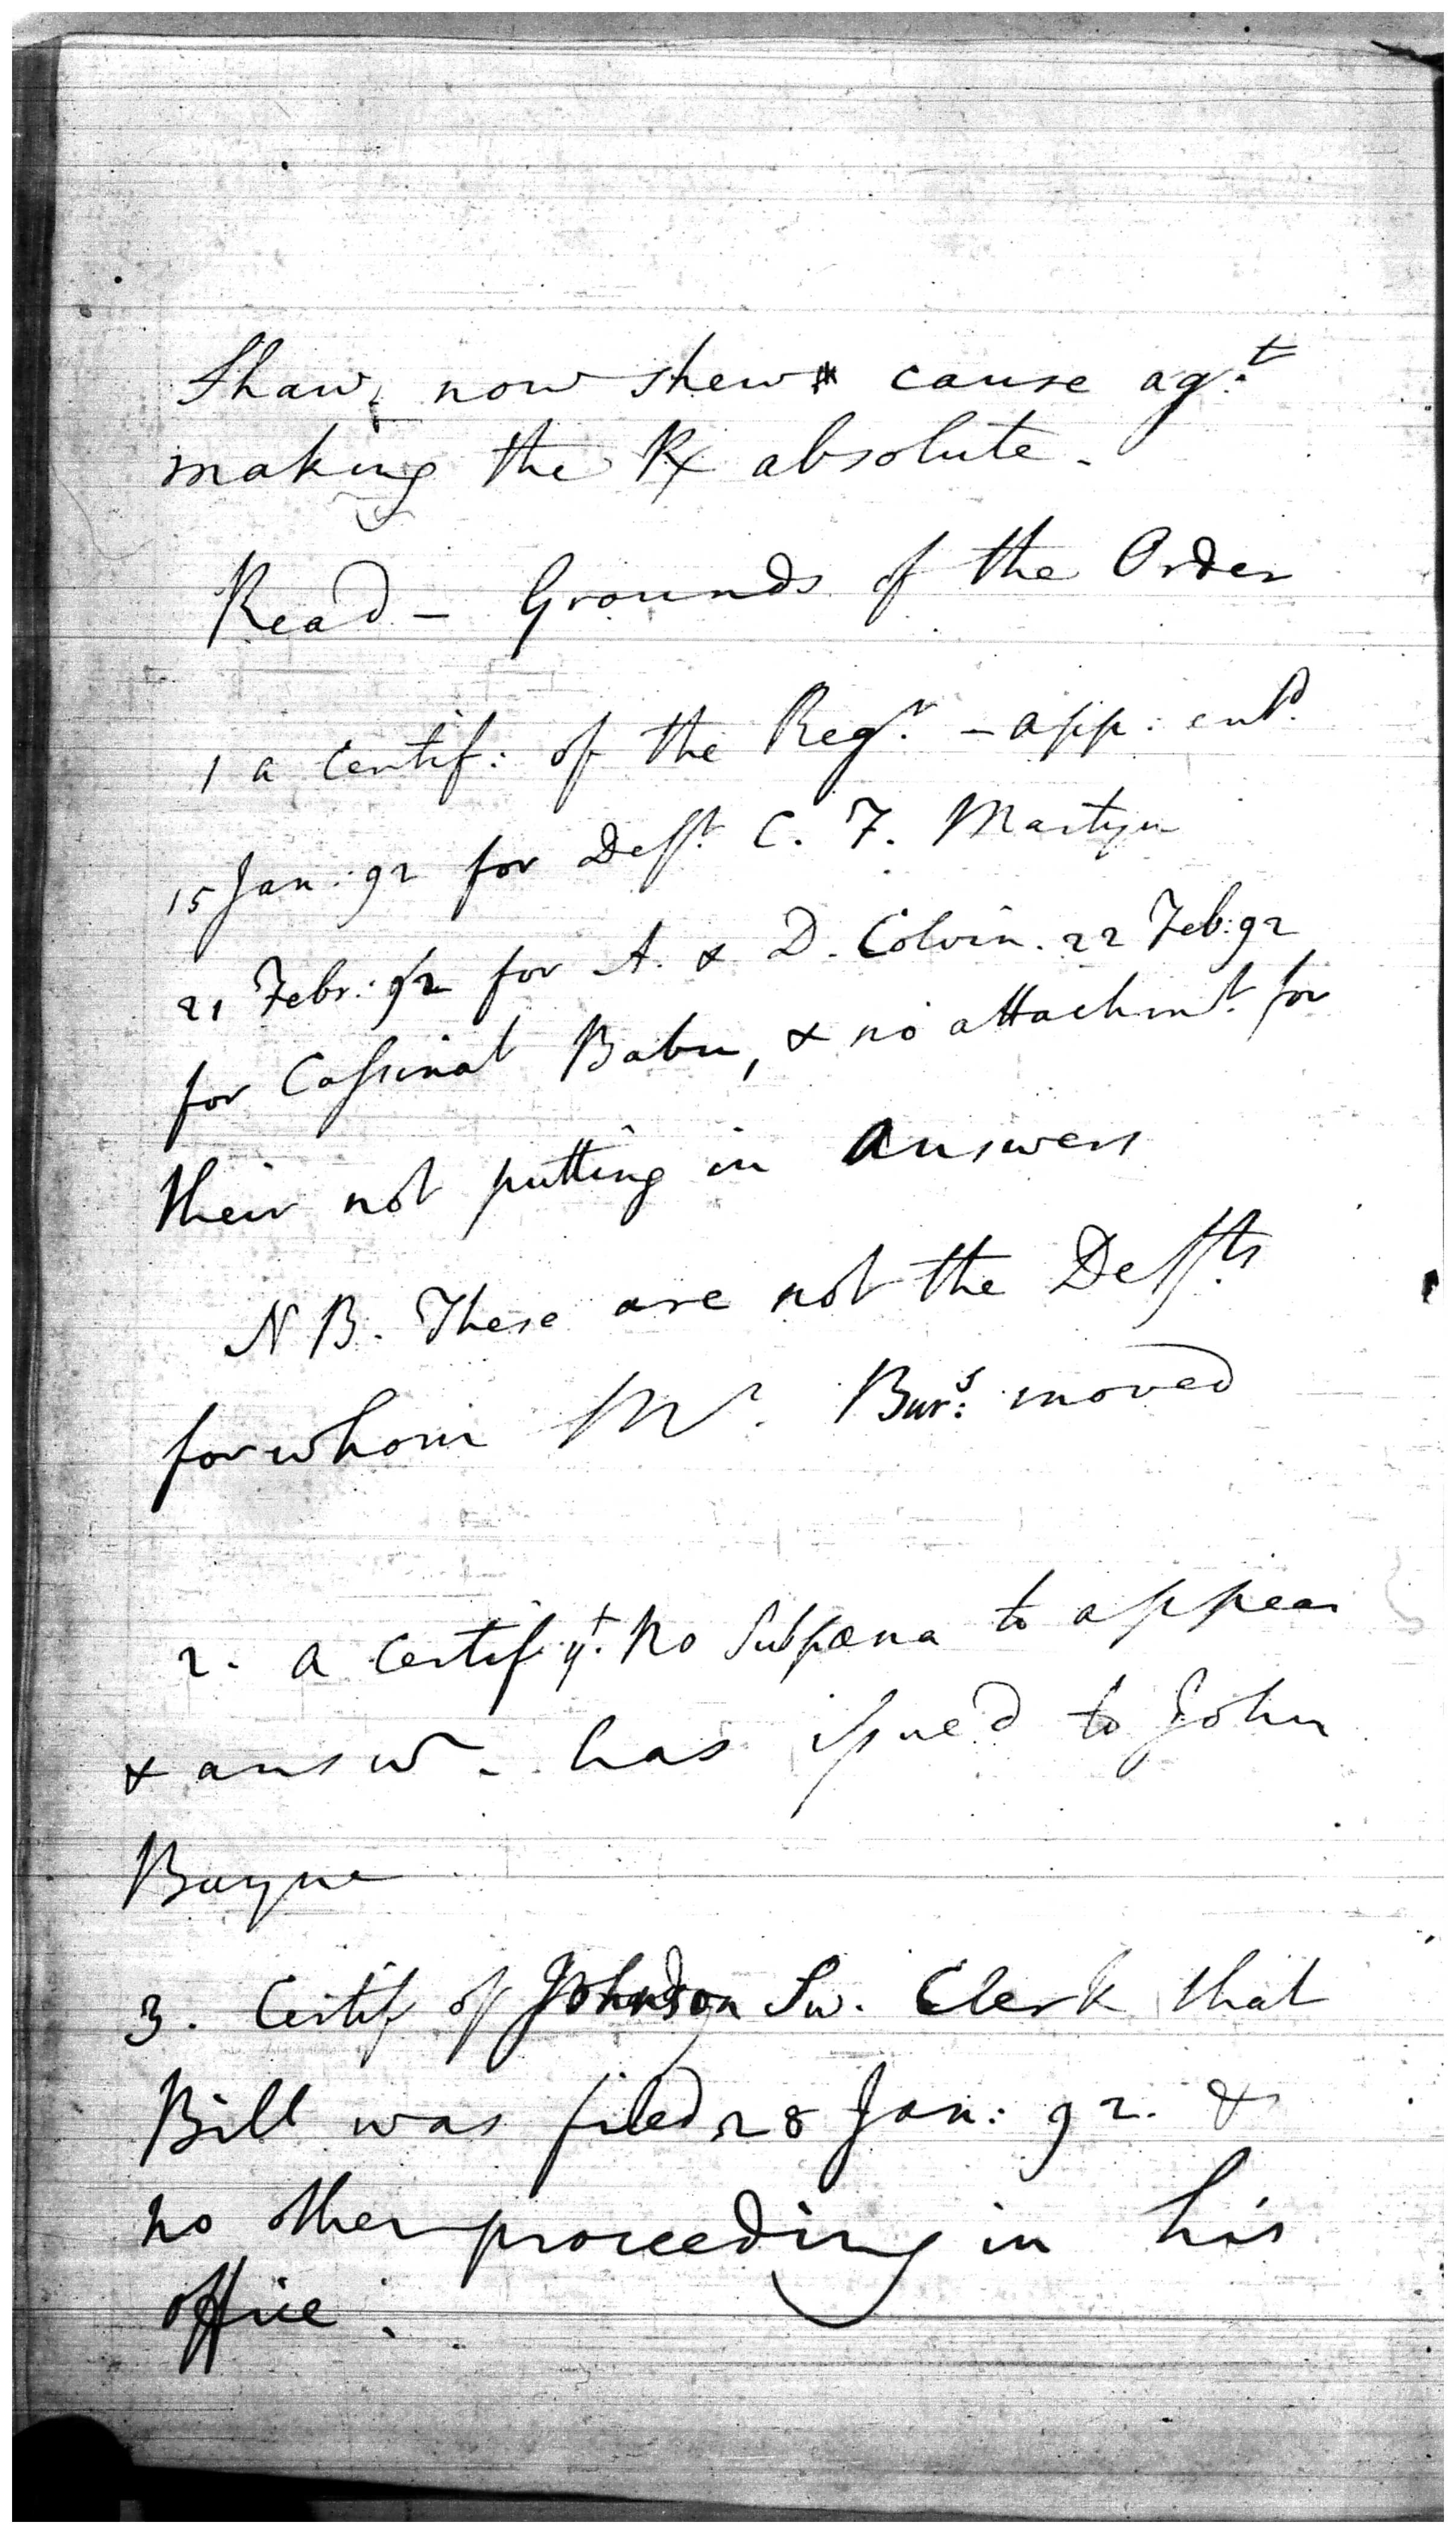 Shaw, now shew cause agt.
making the Rx absolute -
Read - Grounds of the Order
1 a Certif: of the Regr. - app: entd.
15 Jan: 92 for Defft. C. F. Martyn
21 Febr: 92 for A. & D. Colvin. 22 Feb: 92
for Cossinat Babu, & no attachmt. for
their not putting in answers
NB. These are not the Deffts
for whom Mr. Burs: moved
2. a Certif. yt. no Subpœna to appear
& answr - has issued to John
Bayne
3. Certif of Johnson Sw. Clerk that
Bill was filed 28 Jan: 92. &
no other proceeding in his
office.